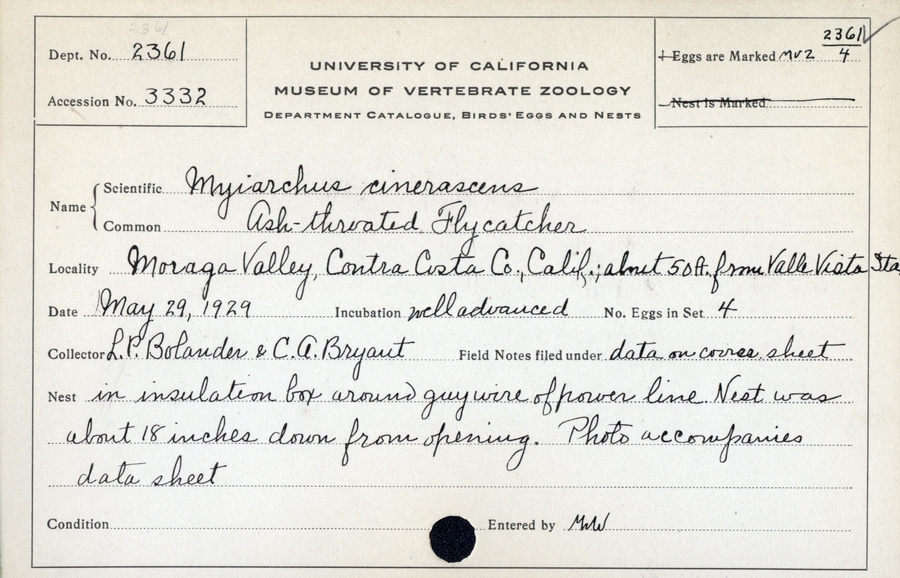 2361
Dept. No. 2361
Accession No. 3332
UNIVERSITY OF CALIFORNIA
MUSEUM OF VERTEBRATE ZOOLOGY
DEPARTMENT CATALOGUE, BIRDS' EGGS AND NESTS
2361
Eggs are Marked MVZ 4
Nest is Marked
Name
Scientific Myiarchus cinerascens
Common Ash-throated Flycatcher
Locality Moraga Valley, Contra Costa Co., Calif.; about 50 ft. from Valle Vista Sta.
Date May 29, 1929 Incubation well advanced No. Eggs in Set 4
Collector L.P. Bolander & C.A. Bryant Field Notes filed under data on corres. sheet
Nest in insulation box around guy wire of power line. Nest was
about 18 inches down from opening. Photo accompanies
data sheet
Condition Entered by MW